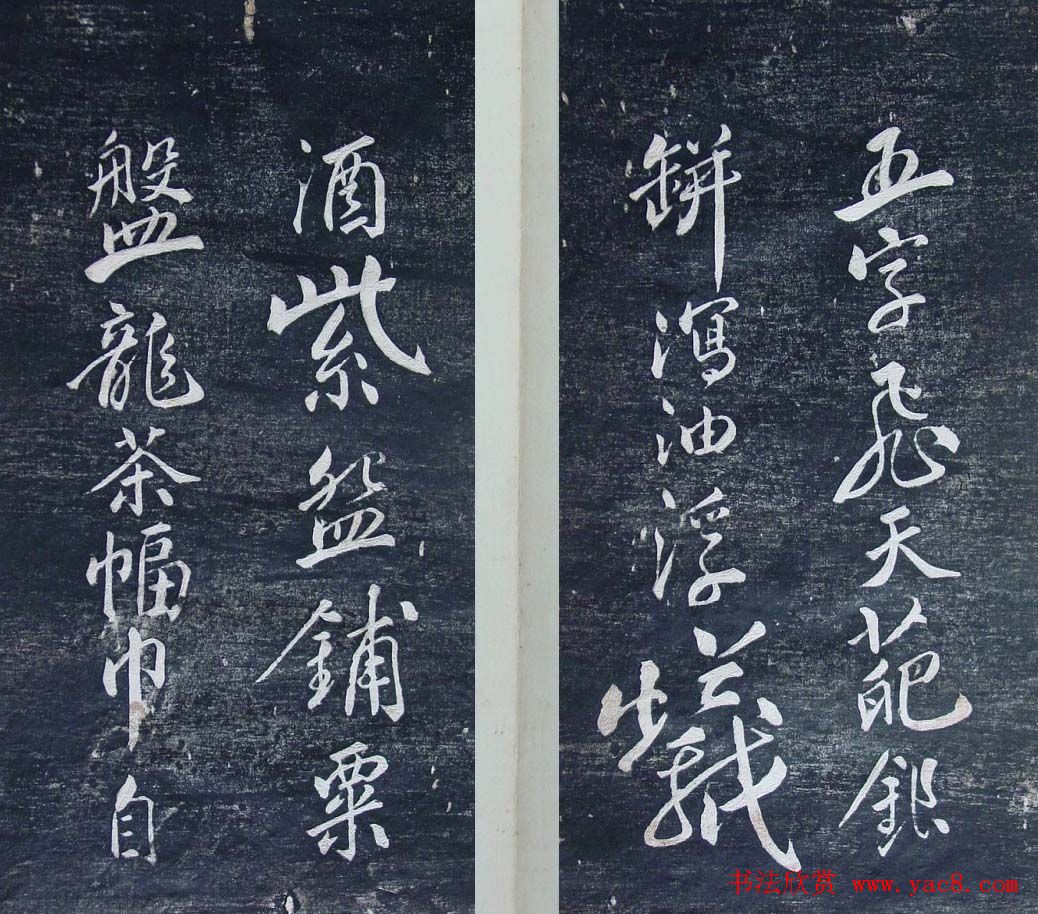 五字飛天葩銀
缾瀉油浮蟻
酒紫盌鋪粟
盤龍茶幅巾自
书法欣赏 www.yac8.com